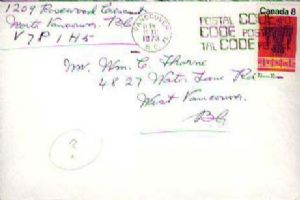 1209 Rosewood Crescent
North Vancouver BC
V7P 1H5
VANCOUVER
1973
B.C.
POSTAL CODE
CODE POSTAL
TAL CODE
Canada 8
Mr. Wm. C. Thorne
4827 Water Lane Rd
West Vancouver
BC
?